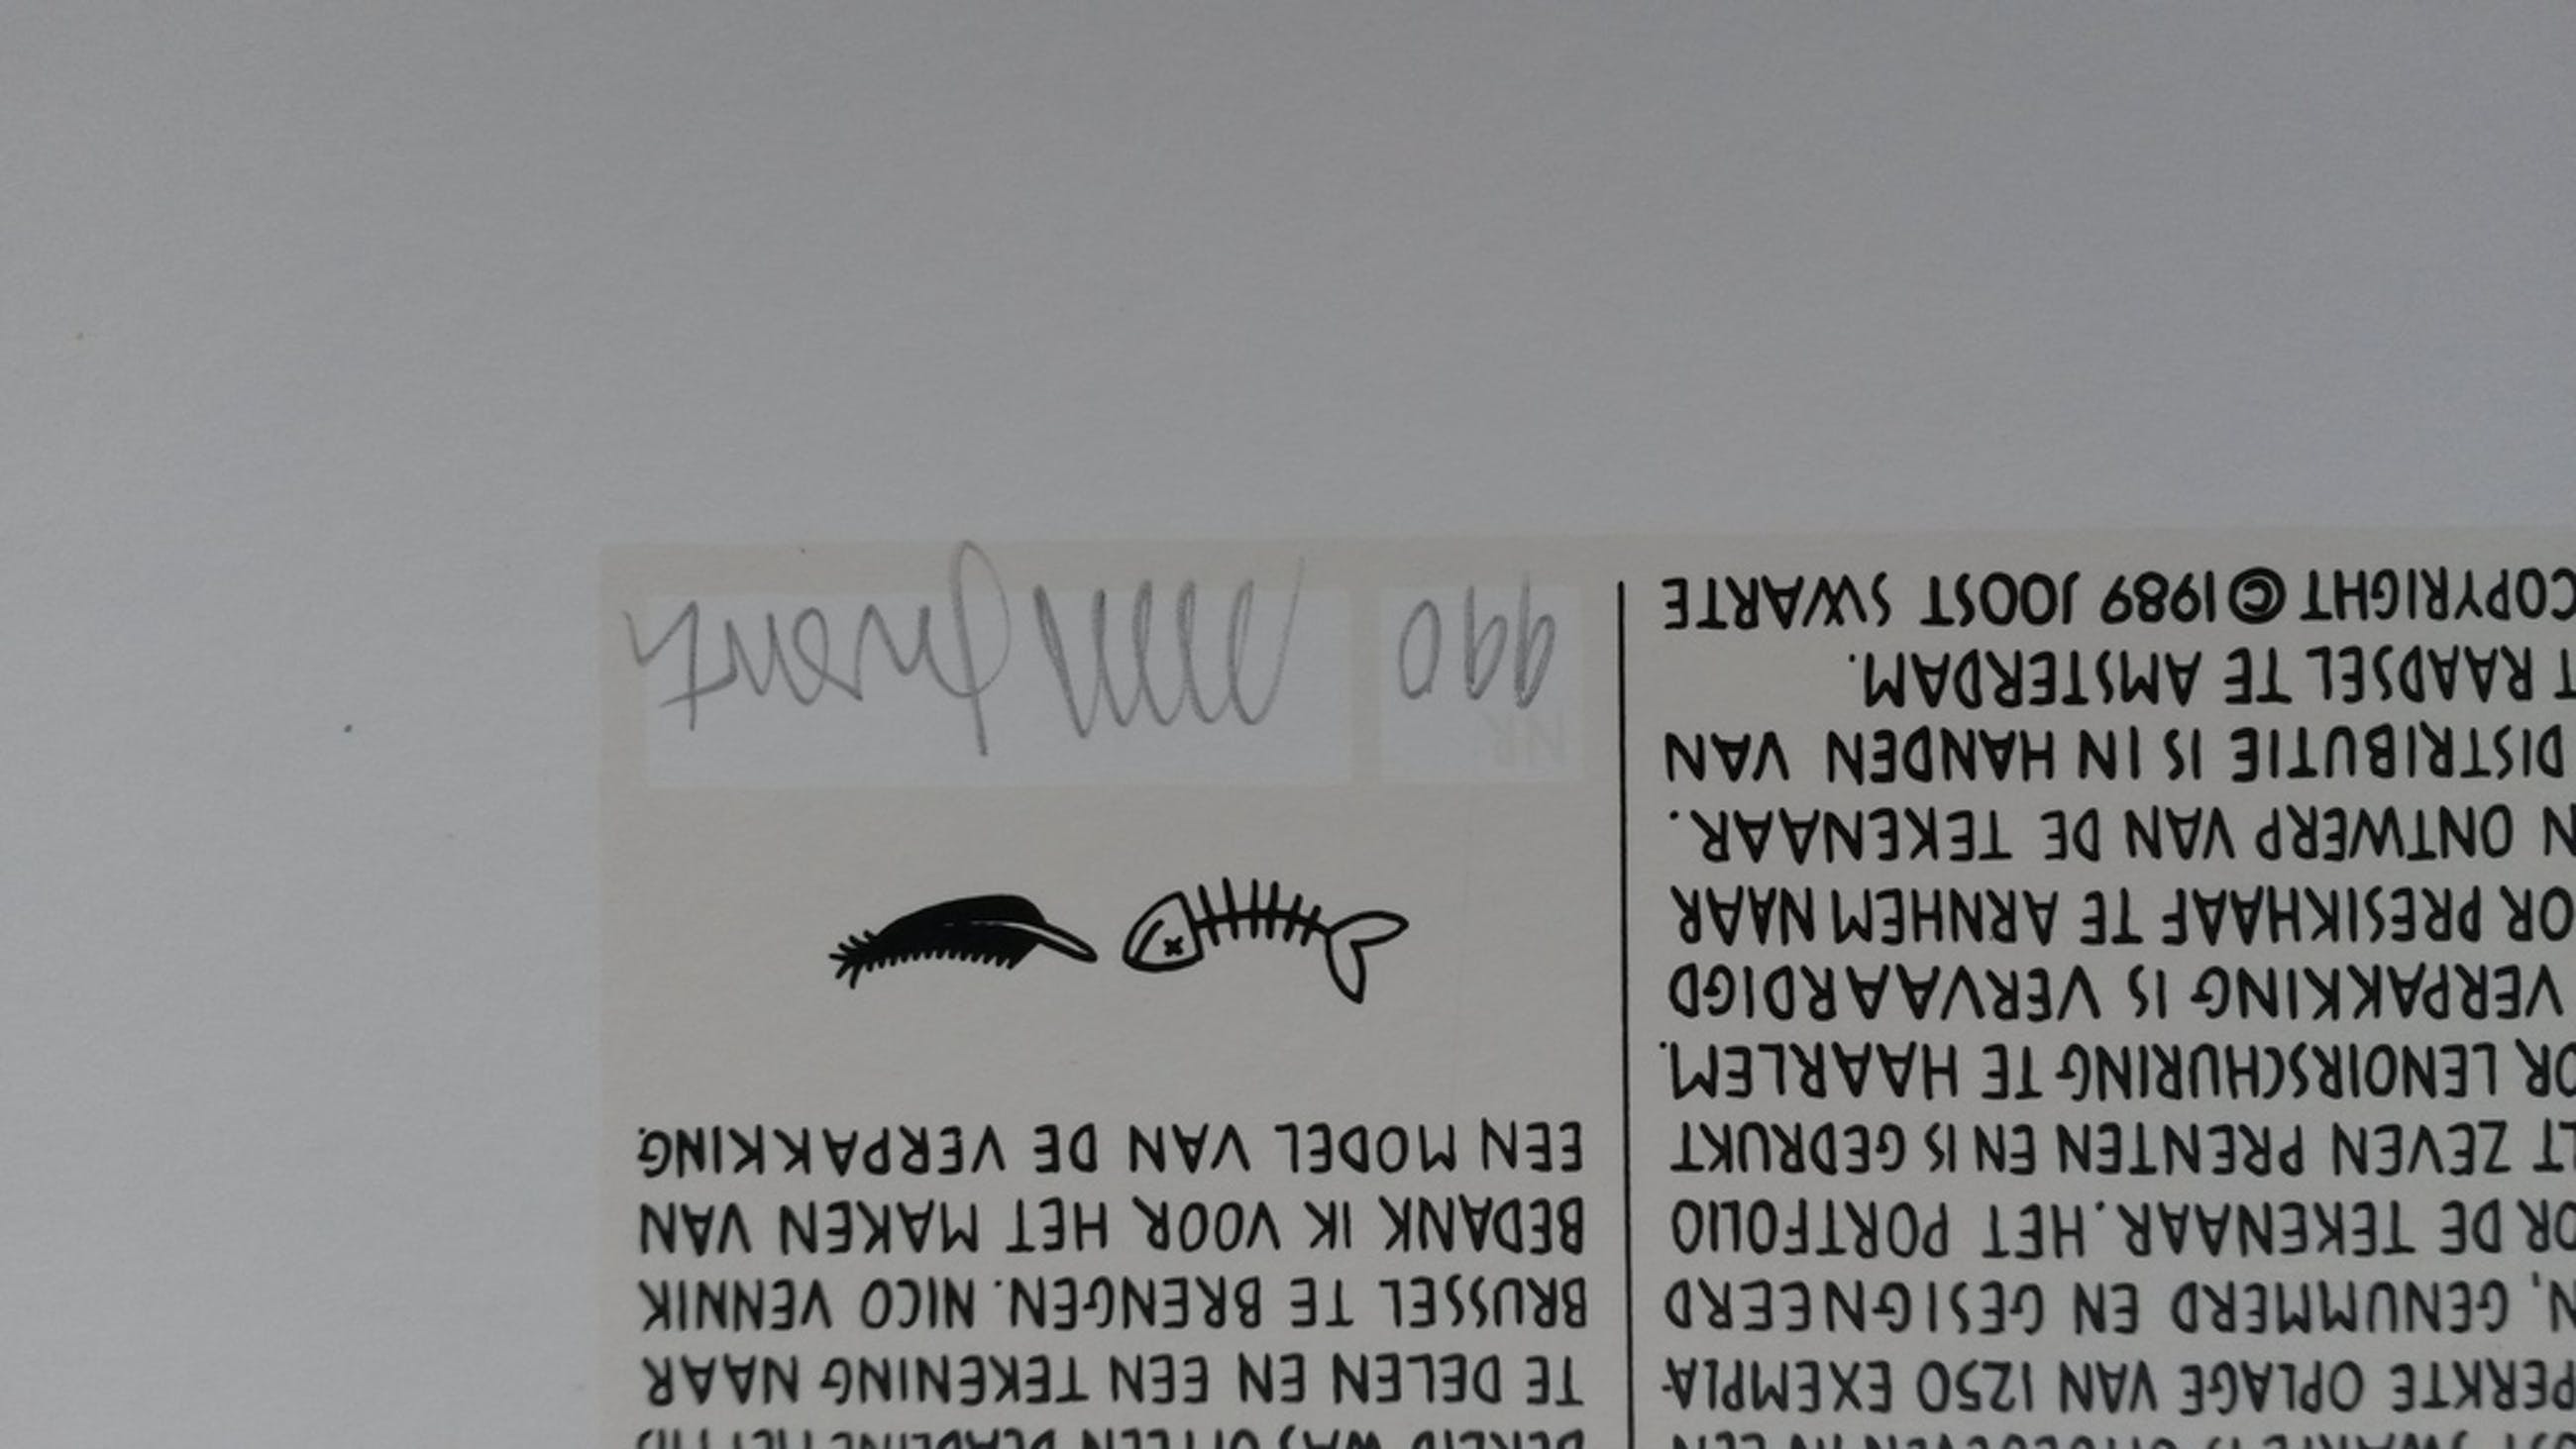 PERKTE OPLAGE VAN 1250 EXEMPLA-
N, GENUMMERD EN GESIGNEERD
OR DE TEKENAAR. HET PORTFOLIO
LT ZEVEN PRENTEN EN IS GEDRUKT
OR LENOIRSCHURING TE HAARLEM.
VERPAKKING IS VERVAARDIGD
OR PRESIKHAAF TE ARNHEM NAAR
N ONTWERP VAN DE TEKENAAR.
DISTRIBUTIE IS IN HANDEN VAN
T RAADSEL TE AMSTERDAM.
COPYRIGHT © 1989 JOOST SWARTE
TE DELEN EN EEN TEKENING NAAR
BRUSSEL TE BRENGEN. NICO VENNIK
BEDANK IK VOOR HET MAKEN VAN
EEN MODEL VAN DE VERPAKKING.
NR.
990